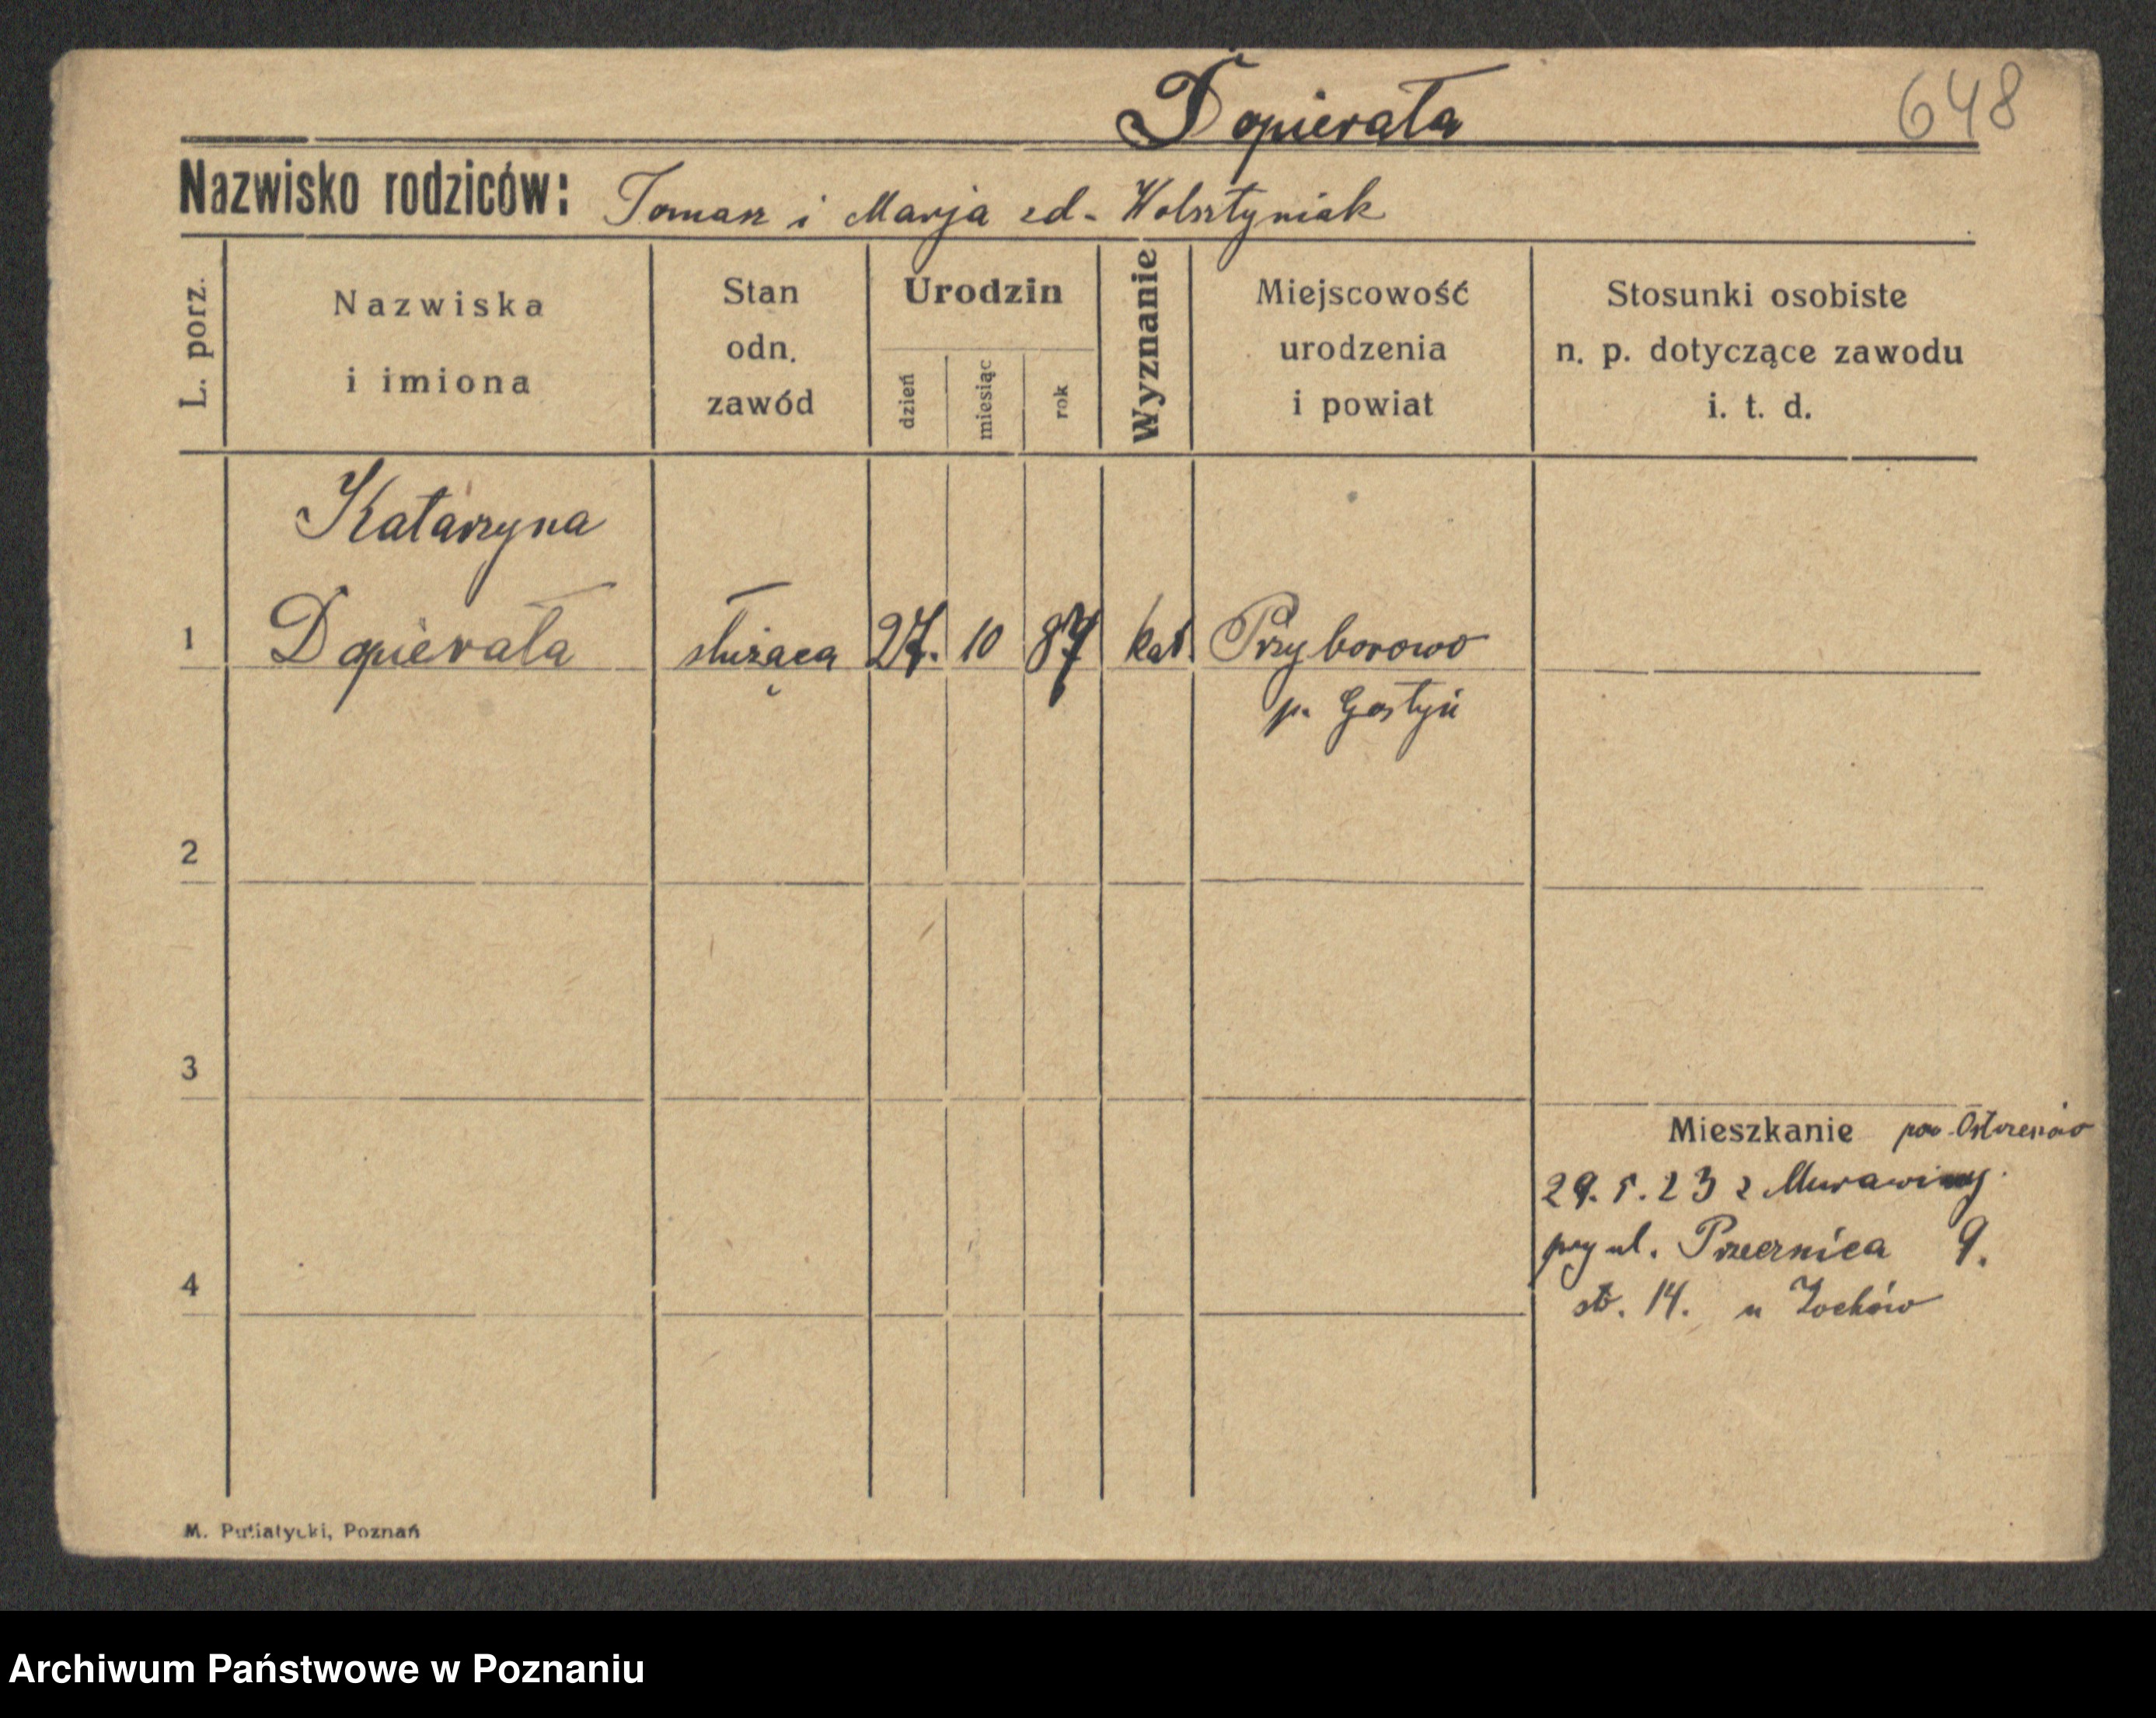 Dopierała
648
Nazwisko rodziców: Tomasz i Marja zd. Wolsztyniak
L. porz.
Nazwiska
i imiona
Stan
odn.
zawód
Urodzin
dzień
miesiąc
rok
Wyznanie
Miejscowość
urodzenia
i powiat
Stosunki osobiste
n. p. dotyczące zawodu
i. t. d.
Katarzyna
1 Dopierała służąca 27. 10 87 kat. Przyborowo
p. Gostyń
2
3
Mieszkanie pow. Ostrzeszów
29. 5. 23 z Murawiny
przy ul. Przecznica 9.
4
str. 14. u Żochów
M. Putiatycki, Poznań
Archiwum Państwowe w Poznaniu